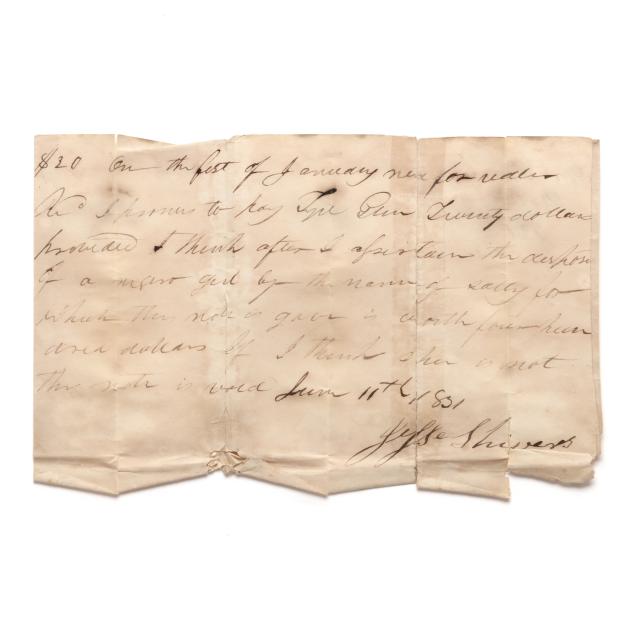 $20 On the first of January next for value
Recd I promis to pay Tyre Glen Twenty dollars
provided I think after I assertain the dispos
of a negro girl by the name of Sally for
which this note is gave is worth four hun
dred dollars If I think sher is not
this note is void June 11th 1831
Jesse Shivers